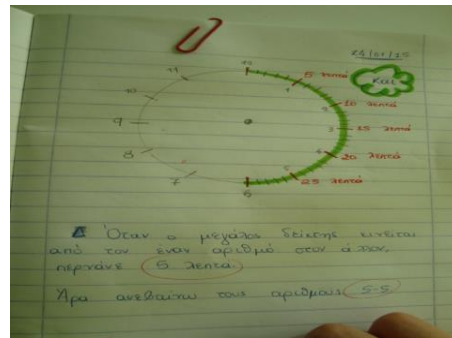 29/01/15
Και
12
11
10
9
8
7
6
1 5 λεπτά
2 10 λεπτά
3 15 λεπτά
4 20 λεπτά
5 25 λεπτά
Όταν ο μεγάλος δείκτης κινείται
από τον έναν αριθμό στον άλλον,
περνάνε 5 λεπτά.
Άρα ανεβαίνω τους αριθμούς 5-5